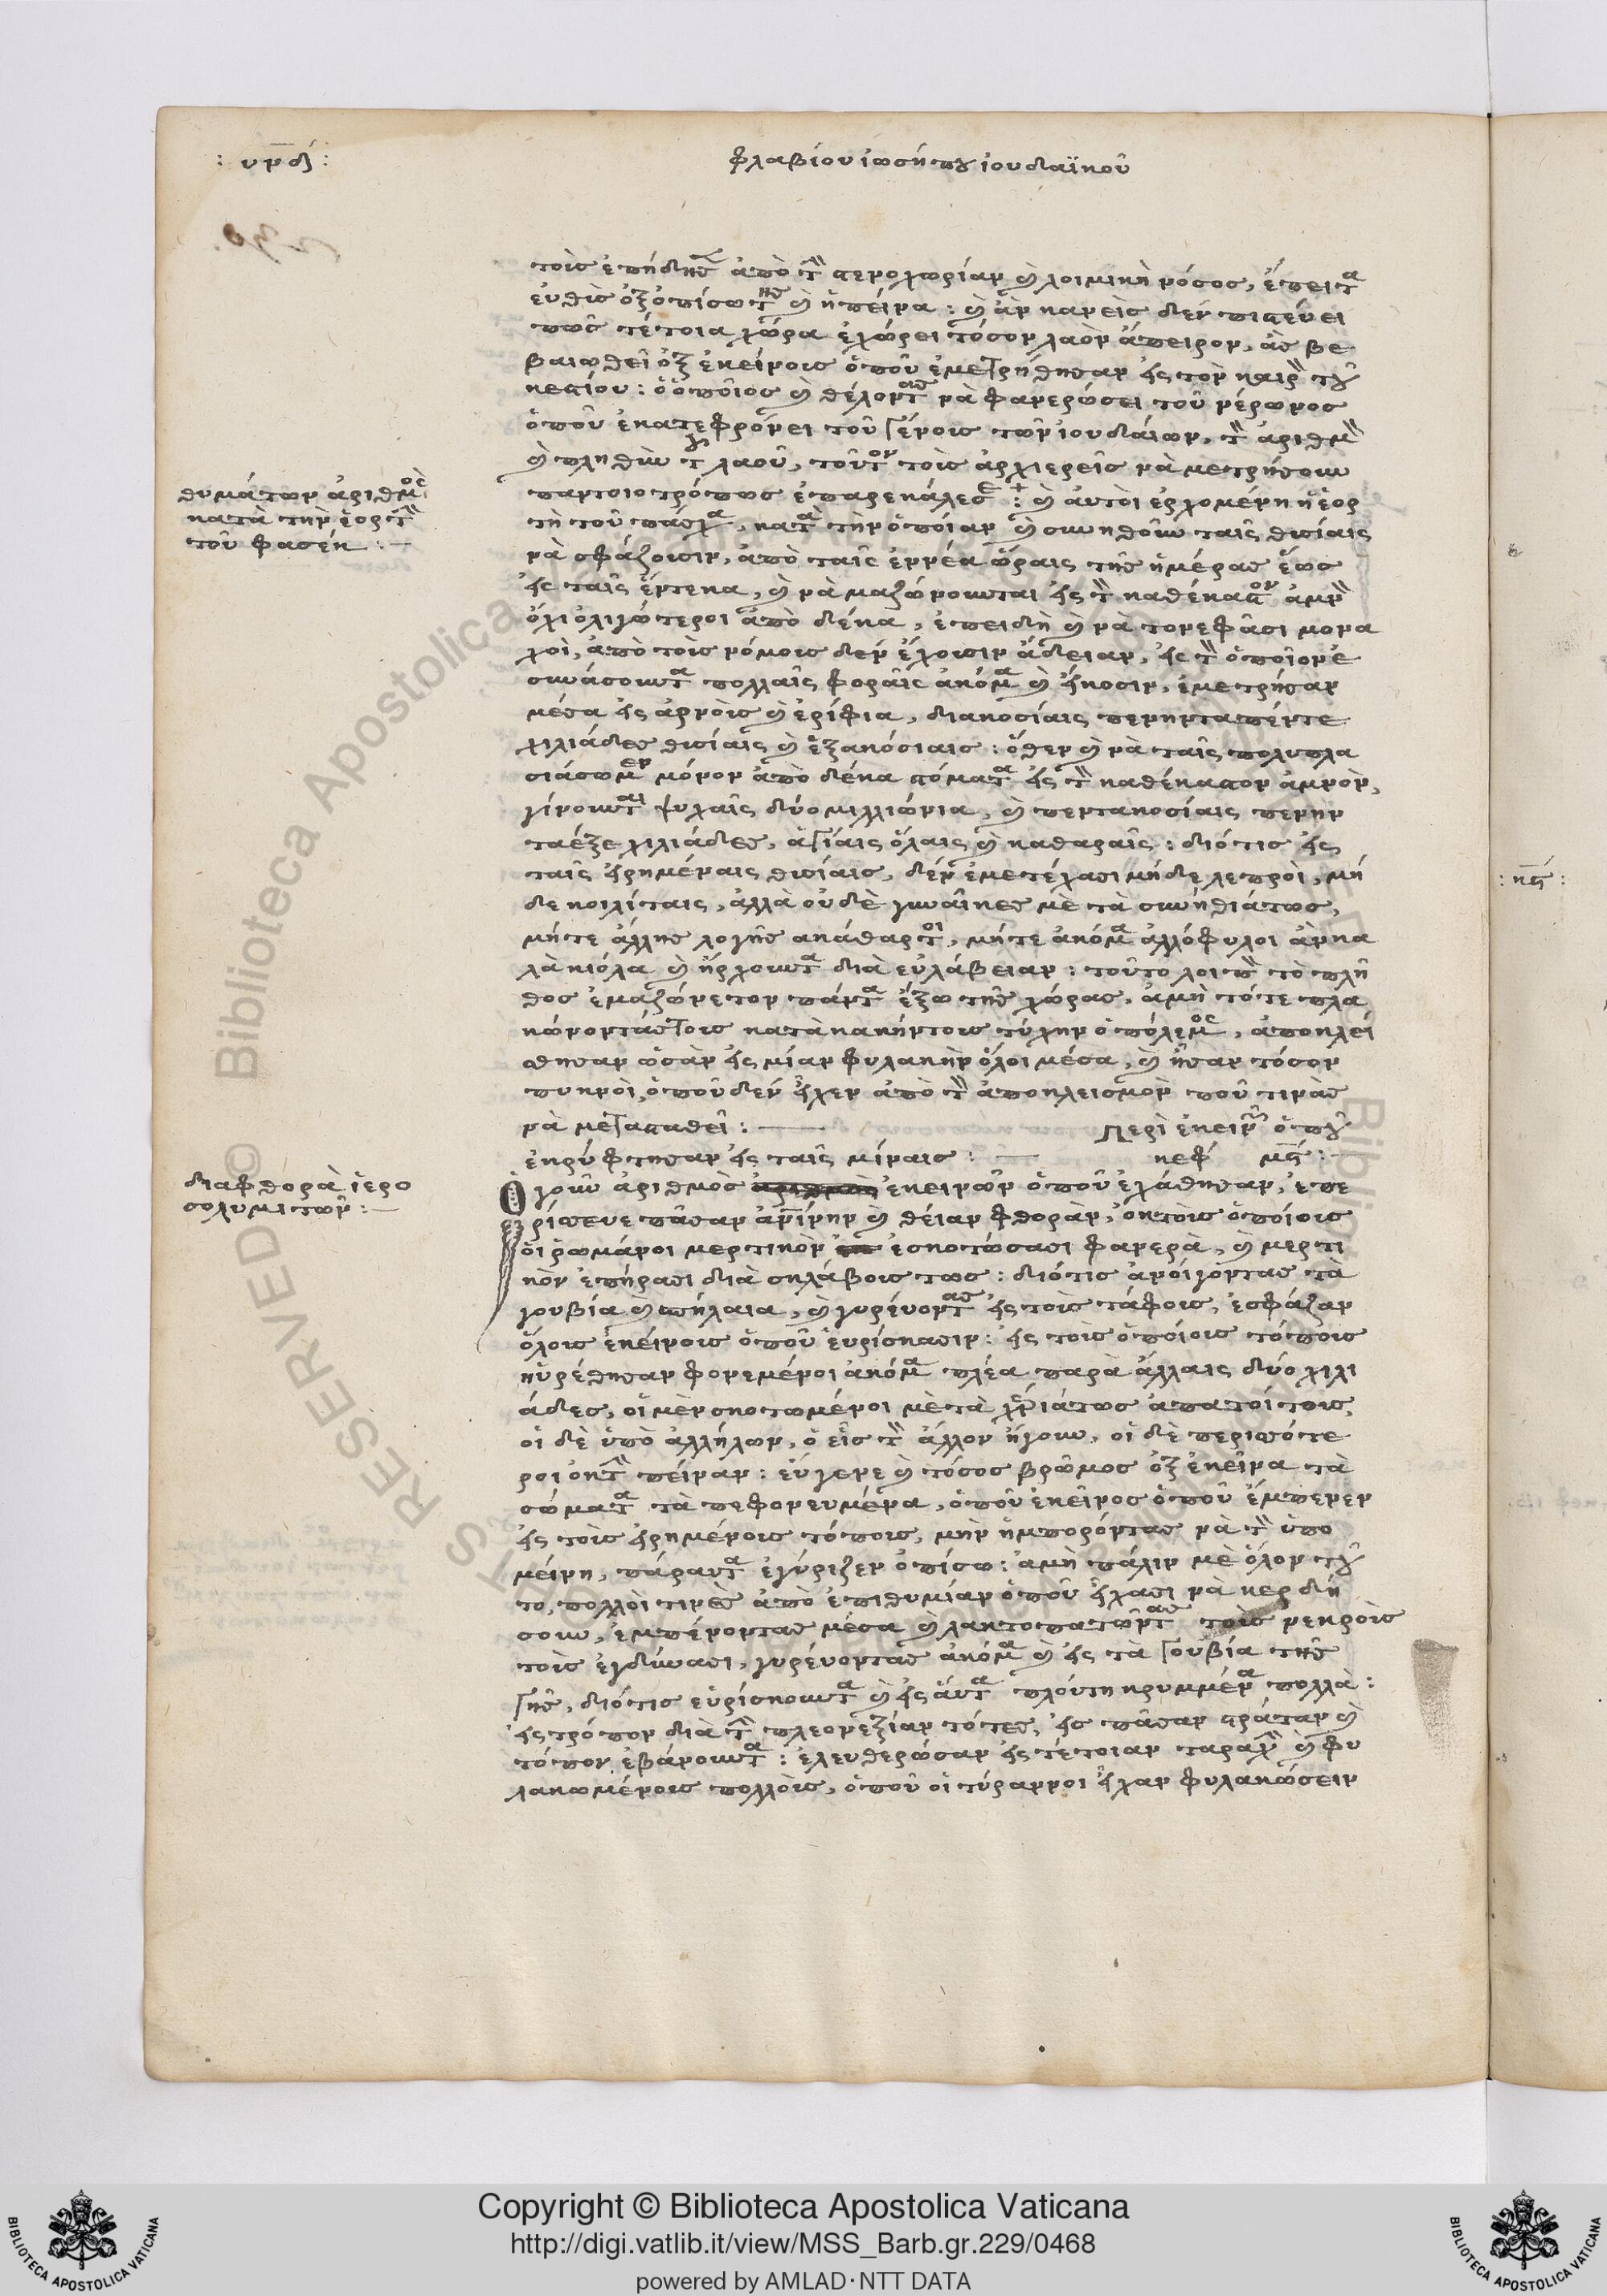 : υνδ :
φλαβίου ἰωσήπου ἰουδαϊκοῦ
τοὺς ἐπήδησεν ἀπὸ τὴν στενοχωρίαν καὶ λοιμικὴ νόσος, ἔπειτα
εὐθὺς ὀξοπίσω της καὶ ἡ πείνα : καὶ ἂν κανεὶς δὲν πιστεύει
πῶς τέτοια χώρα ἐχώρει τόσον λαὸν ἄπειρον, ἂς βε
βαιωθεῖ ὀξ ἐκείνους ὁποῦ ἐμετρήθησαν εἰς τὸν καιρὸν τοῦ
κεστίου : ὁ ὁποῖος καὶ θέλοντας νὰ φανερώσει τοῦ νέρωνος
ὁποῦ ἐκατεφρόνει τοῦ γένους τῶν ἰουδαίων, τὸν ἀριθμὸν
καὶ πληθὺν τοῦ λαοῦ, τοῦτον τοὺς ἀρχιερεῖς νὰ μετρήσουν
παντοιοτρόπως ἐπαρεκάλεσε : καὶ αὐτοὶ ἐρχομένη ἡ ἑορ
θυμάτων ἀριθμὸς
κατὰ τὴν ἑορτὴν
τοῦ φασέκ :
τὴ τοῦ πάσχα, κατὰ τὴν ὁποίαν καὶ συνηθοῦν ταῖς θυσίαις
νὰ σφάζουσιν, ἀπὸ ταῖς ἐννέα ὥραις τῆς ἡμέρας ἕως
εἰς ταῖς ἕντεκα, καὶ νὰ μαζώνουνται εἰς τὸν καθένα στὸν ἀμνὸν
ὄχι ὀλιγώτεροι ἀπὸ δέκα, ἐπειδὴ καὶ νὰ τονεφᾶσι μονα
χοὶ, ἀπὸ τοὺς νόμους δὲν ἔχουσιν ἄδειαν, εἰς τὸ ὁποῖον ἐ
συνάσουντα πολλαῖς φοραῖς ἀκόμα καὶ εἴκοσιν, ἐμετρήσαν
μέσα εἰς ἀρνοὺς καὶ ἐρίφια, διακοσίαις πενηνταπέντε
χιλιάδες θυσίαις καὶ ἑξακόσιαις : ὅθεν καὶ νὰ ταῖς πολυπλα
σιάσωμεν μόνον ἀπὸ δέκα στόματα εἰς τὸν καθένα στὸν ἀμνὸν,
γίνουνται ψυχαῖς δύο μιλλιώνια, καὶ πεντακοσίαις πενην
ταέξε χιλιάδες, ἁγίαις ὅλαις καὶ καθαραῖς : διότις εἰς
ταῖς εἰρημέναις θυσίαις, δὲν ἐμετέχασι μήδε λεπροὶ, μή
δε κοιλίταις, ἀλλὰ οὐδὲ γυναῖκες μὲ τὰ συνηθιάτως,
μήτε ἄλλης λογῆς ακάθαρτοι, μήτε ἀκόμα ἀλλόφυλοι ἀν κα
λὰ κιόλα καὶ ἤρχουντα διὰ εὐλάβειαν : τοῦτο λοιπὸν τὸ πλῆ
θος ἐμαζώνετον πάντα ἔξω τῆς χώρας, ἀμὴ τότε πλα
κώνοντάς τους κατὰ κακήν τους τύχην ὁ πόλεμος, ἀποκλεί
σθησαν ὡσὰν εἰς μίαν φυλακὴν ὅλοι μέσα, καὶ ἦσαν τόσον
πυκνοὶ, ὁποῦ δὲν εἶχεν ἀπὸ τὸν ἀποκλεισμὸν ποῦ τινὰς
νὰ μετασταθεῖ : Περὶ ἐκεινῶν ὁποῦ
ἐκρύφτησαν εἰς ταῖς μίναις : κεφ μϛ :
διαφθορὰ ἱερο
σολυμιτῶν :
Ὁ γοῦν ἀριθμὸς ἐκεινῶν ὁποῦ ἐχάθησαν, ἐπε
ρίσσευε πᾶσαν ἀνθρωπίνην καὶ θείαν φθορὰν, ὀκ τοὺς ὁποίους
οἱ ῥωμάνοι μερτικὸν ἐσκοτώσασι φανερὰ, καὶ μερτι
κὸν ἐπήρασι διὰ σκλάβους τως : διότις ἀνοίγοντας τὰ
γουβία καὶ σπήλαια, καὶ γυρεύοντας εἰς τοὺς τάφους, ἐσφάζαν
ὅλους ἐκείνους ὁποῦ εὑρίσκασιν : εἰς τοὺς ὁποίους τόπους
ηὑρέθησαν φονεμένοι ἀκόμα πλέα παρὰ ἄλλαις δύο χιλι
άδες, οἱ μὲν σκοτωμένοι μὲ τὰ χεριάτως ἀπατοί τους,
οἱ δὲ ὑπὸ ἀλλήλων, ὁ εἷς τὸν ἄλλον ἤγουν, οἱ δὲ περισσότε
ροι ὀκ τὴν πείναν : εὔγενε καὶ τόσος βρῶμος ὀξ ἐκεῖνα τὰ
σώματα τὰ πεφονευμένα, ὁποῦ ἐκεῖνος ὁποῦ ἔμπενεν
εἰς τοὺς εἰρημένους τόπους, μὴν ἡμπορόντας νὰ τὸν ὑπο
μείνη, πάραυτα ἐγύριζεν ὀπίσω : ἀμὴ πάλιν μὲ ὅλον τοῦ
το, πολλοὶ τινὲς ἀπὸ ἐπιθυμίαν ὁποῦ εἴχασι νὰ κερδή
σουν, ἐμπένοντας μέσα καὶ λακτοπατῶντας τοὺς νεκροὺς
τοὺς ἐγδύνασι, γυρεύοντας ἀκόμα καὶ εἰς τὰ γουβία τῆς
γῆς, διότις εὑρίσκουντα καὶ εἰς αὐτὰ πλούτη κρυμμένα πολλὰ :
εἰς τρόπον διὰ τὴν πλεονεξίαν τότες, εἰς πᾶσαν στράταν καὶ
τόπον ἐβάνουντα : ἐλευθερώσαν εἰς τέτοιαν ταραχὴν καὶ φυ
λακωμένους πολλοὺς, ὁποῦ οἱ τύραννοι εἶχαν φυλακώσειν
: κϛ :
Copyright © Biblioteca Apostolica Vaticana
http://digi.vatlib.it/view/MSS_Barb.gr.229/0468
powered by AMLAD·NTT DATA